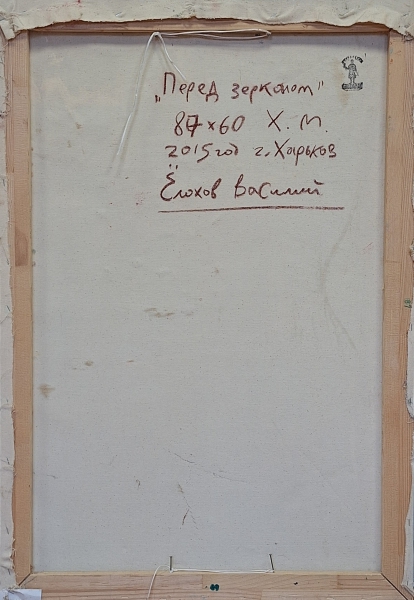 „Перед зеркалом"
87×60 Х. М.
2015 год г. Харьков
Ёлохов Василий